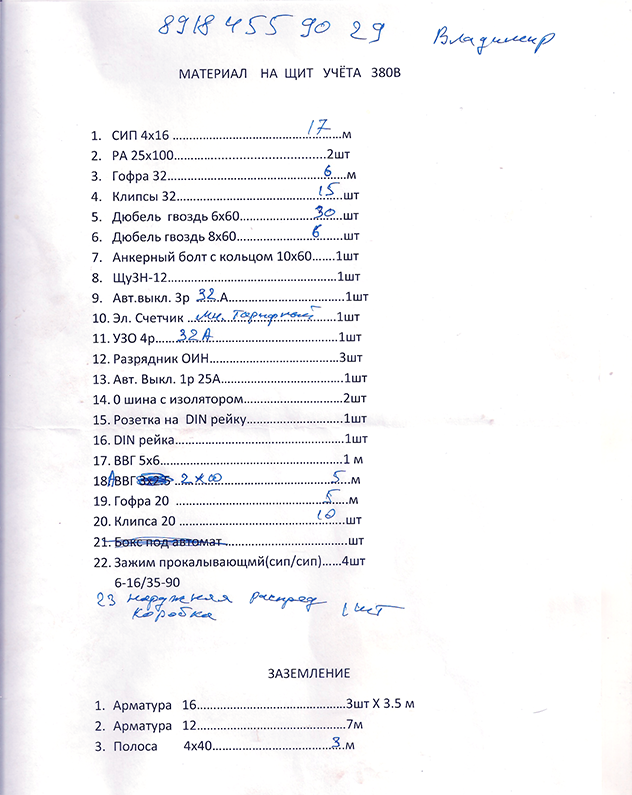 8918 455 90 29 Владимир
МАТЕРИАЛ НА ЩИТ УЧЁТА 380В
1. СИП 4х16 ........17 м
2. РА 25х100........2шт
3. Гофра 32........6 м
4. Клипсы 32........15 шт
5. Дюбель гвоздь 6х60........30 шт
6. Дюбель гвоздь 8х60........6 шт
7. Анкерный болт с кольцом 10х60.......1шт
8. ЩуЗН-12........1шт
9. Авт.выкл. 3р 32 А........1шт
10. Эл. Счетчик мн. Тарифный 1шт
11. УЗО 4р........32А........1шт
12. Разрядник ОИН........3шт
13. Авт. Выкл. 1р 25А........1шт
14. 0 шина с изолятором........2шт
15. Розетка на DIN рейку........1шт
16. DIN рейка........1шт
17. ВВГ 5х6........1 м
18. АВВГ 2х ........5 м
19. Гофра 20 ........5 м
20. Клипса 20 ........10 шт
21. Бокс под автомат ........шт
22. Зажим прокалывающмй(сип/сип)......4шт
6-16/35-90
23 наружняя распред 1шт
коробка
ЗАЗЕМЛЕНИЕ
1. Арматура 16........3шт Х 3.5 м
2. Арматура 12........7м
3. Полоса 4х40........3 м